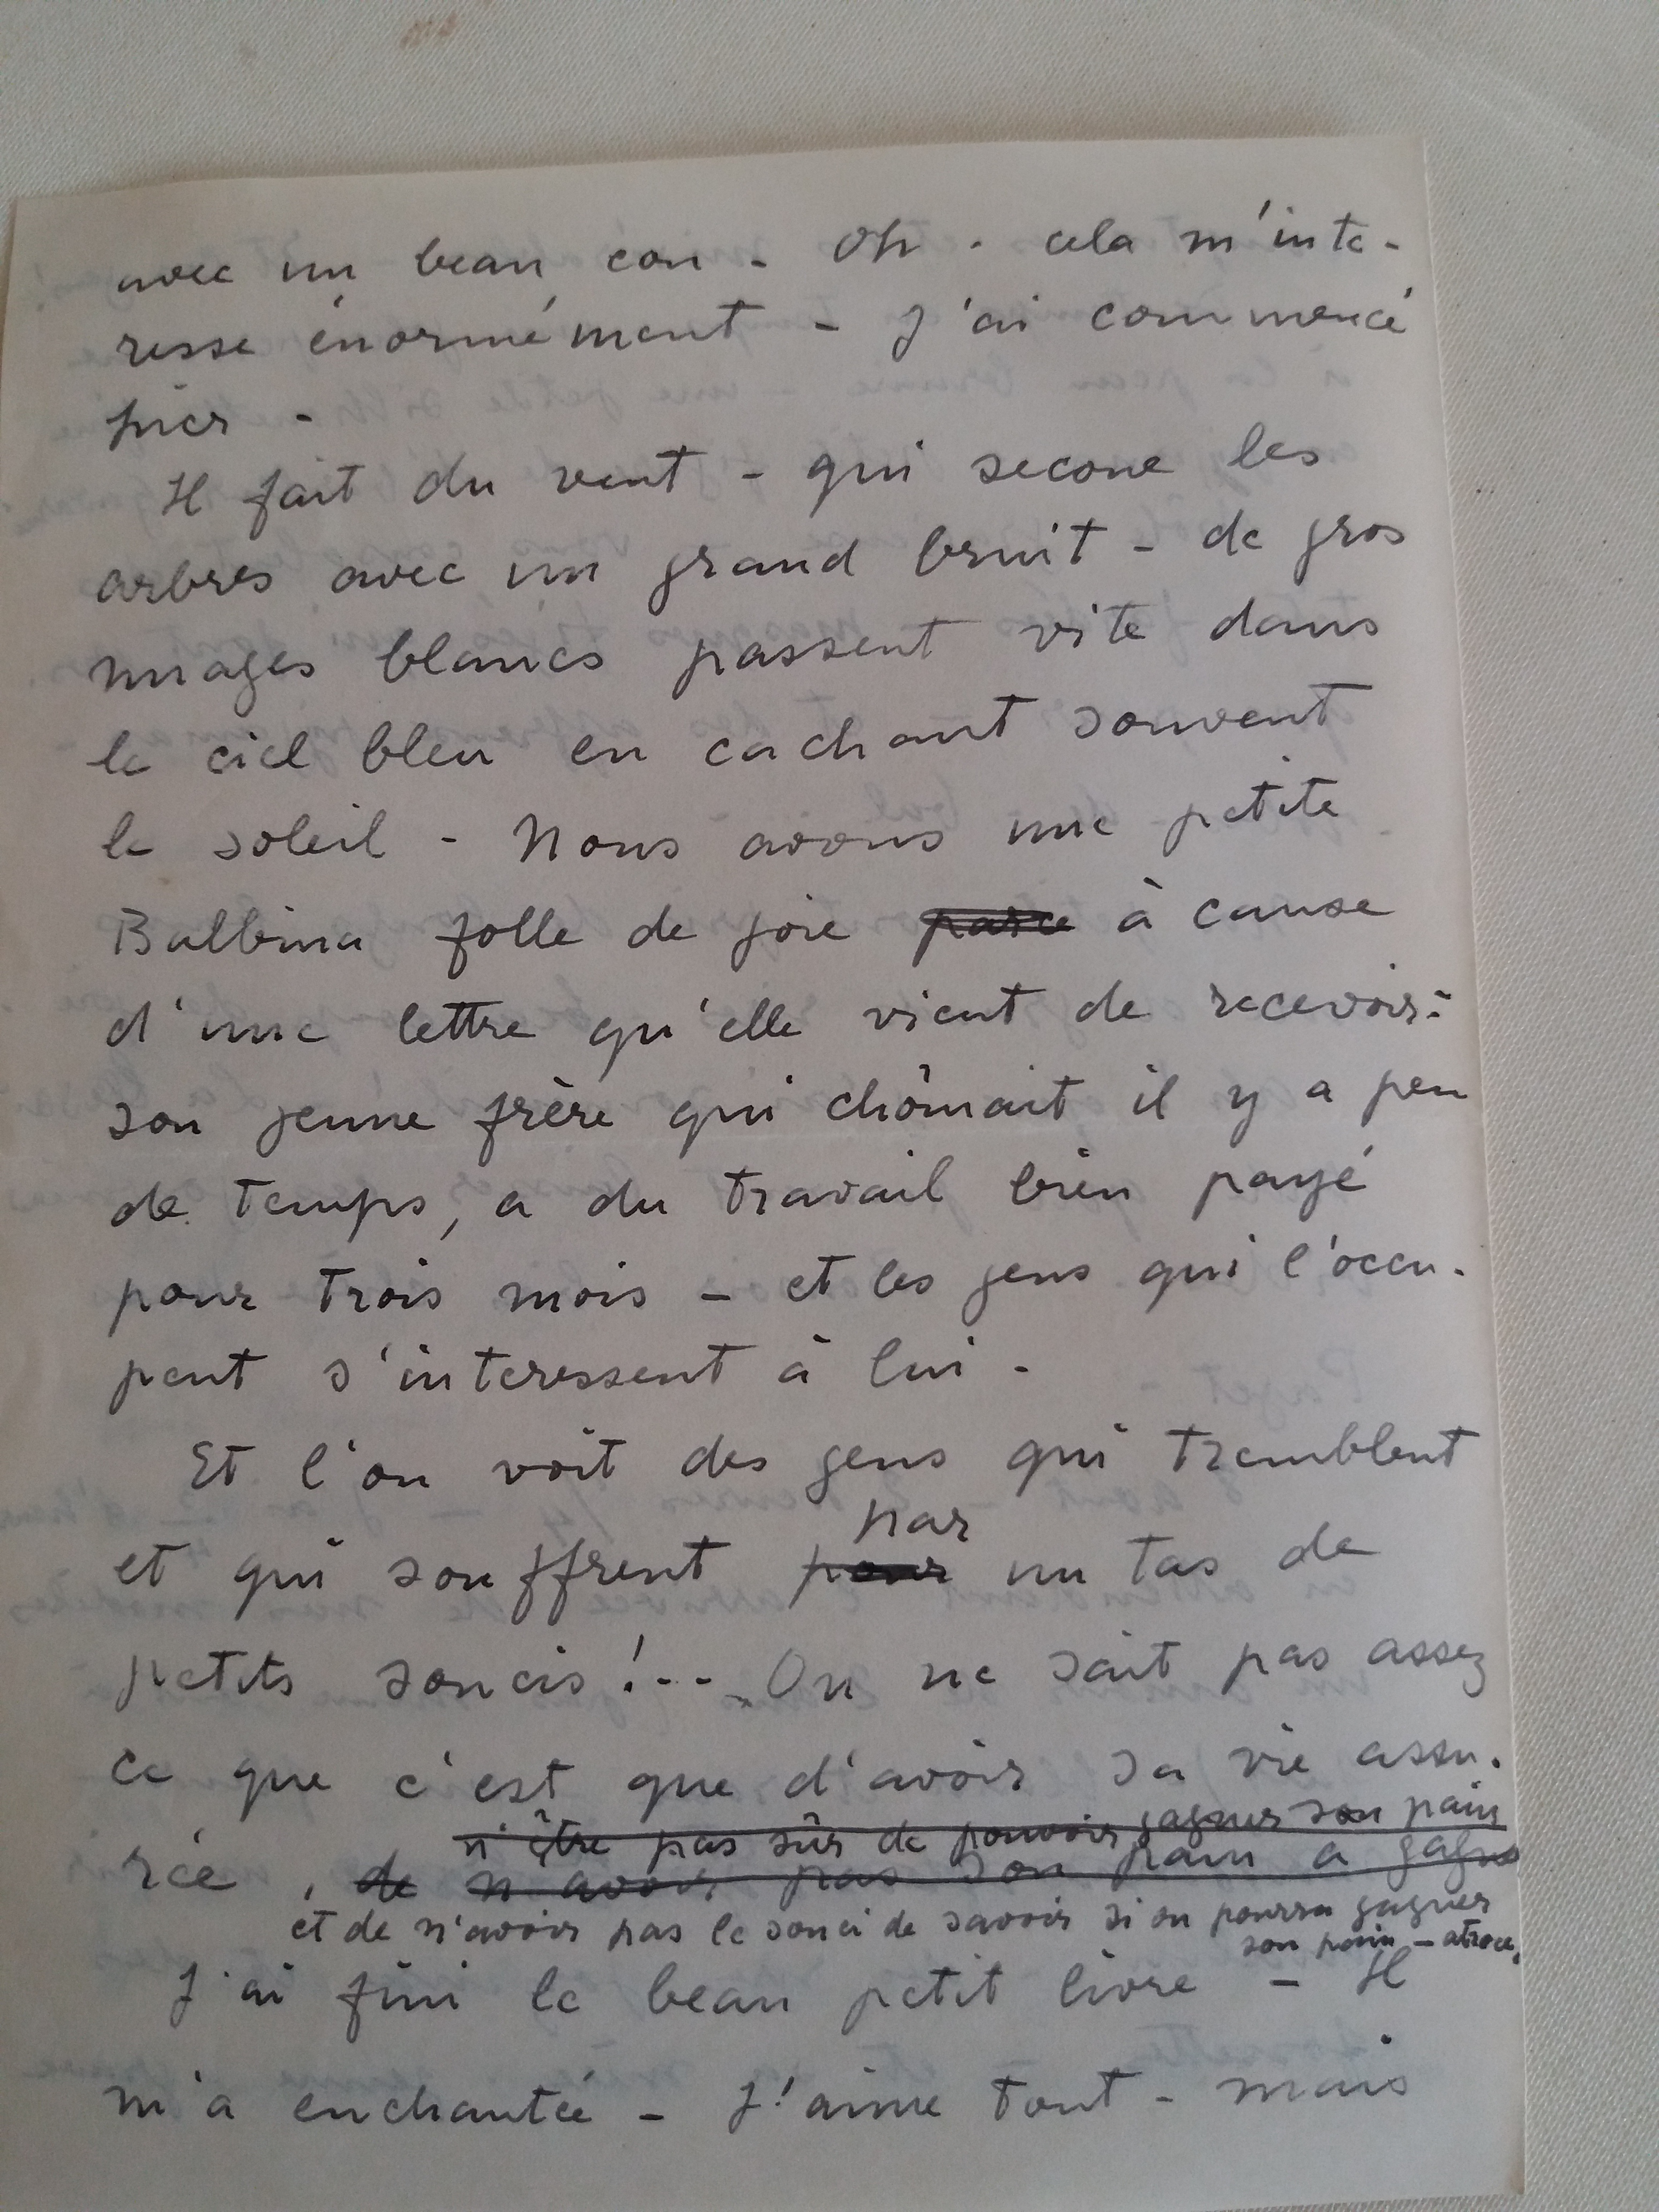 avec un beau cou - Oh - cela m'inte-
resse énormément - J'ai commencé
hier -
Il fait du vent - qui secoue les
arbres avec un grand bruit - de gros
nuages blancs passent vite dans
le ciel bleu en cachant souvent
le soleil - Nous avons une petite
Balbina folle de joie parce à cause
d'une lettre qu'elle vient de recevoir:
son jeune frère qui chômait il y a peu
de temps, a du travail bien payé
pour trois mois - et les gens qui l'occu-
pent s'interessent à lui -
Et l'on voit des gens qui tremblent
par
et qui souffrent pour un tas de
petits soucis !... On ne sait pas assez
ce que c'est que d'avoir sa vie assu-
n'être pas sûr de pouvoir gagner son pain
rée, de n'avoir pas son pain a gagné
et de n'avoir pas le souci de savoir si on pourra gagner
son pain - atroce.
J'ai fini le beau petit livre - Il
m'a enchantée - J'aime tout - mais